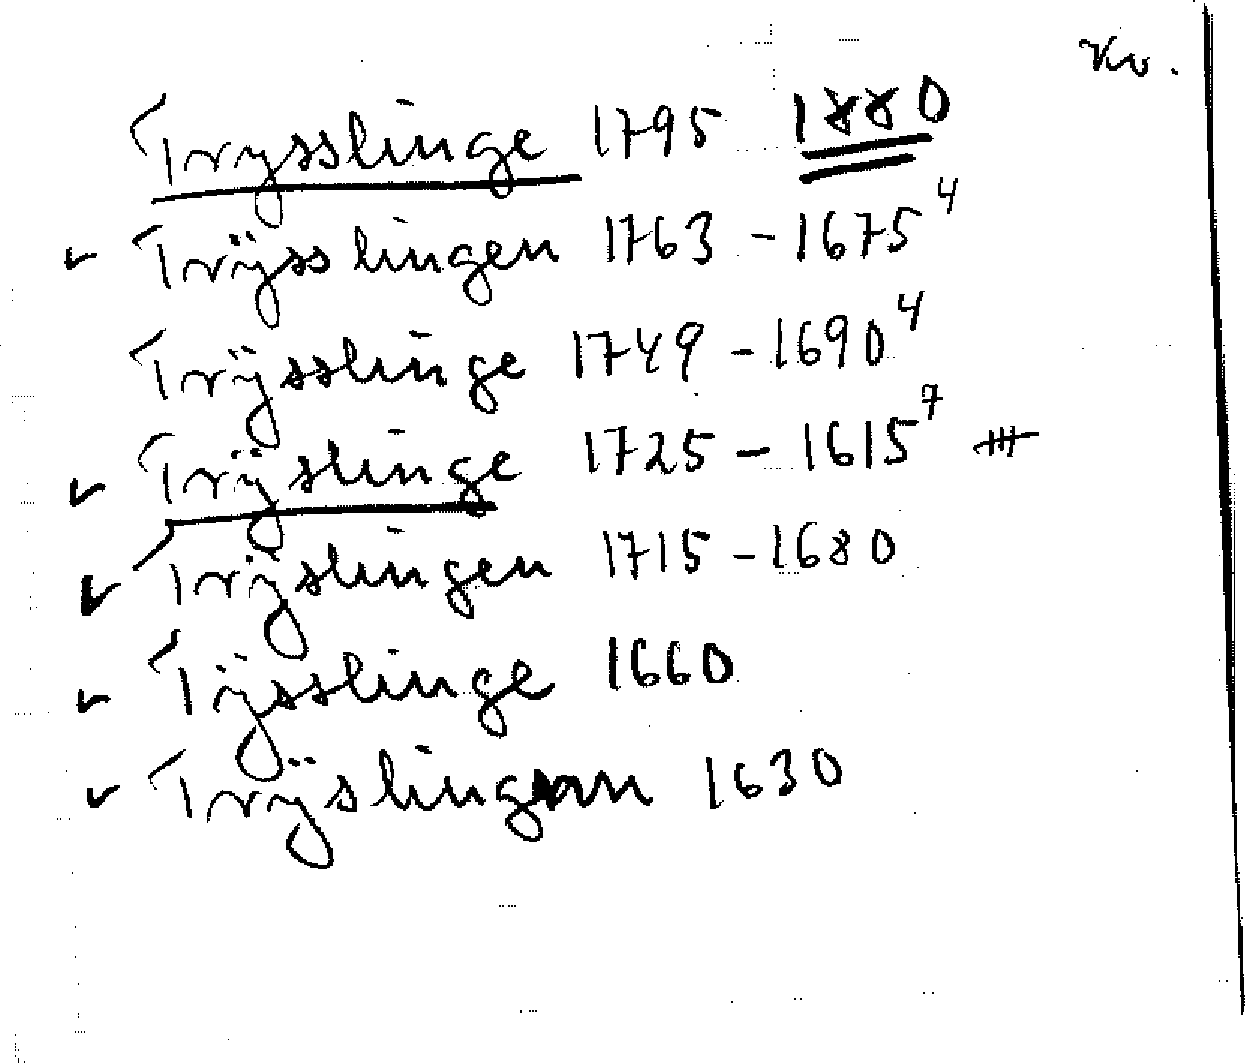 Kv.
Trysslinge 1795 1880
✓ Trÿsslingen 1763 - 1675⁴
Trÿsslinge 1749 - 1690⁴
✓ Trÿslinge 1725 - 1615⁷
✓ Trÿslingen 1715 - 1680
✓ Tÿsslinge 1660
✓ Trÿslingan 1630